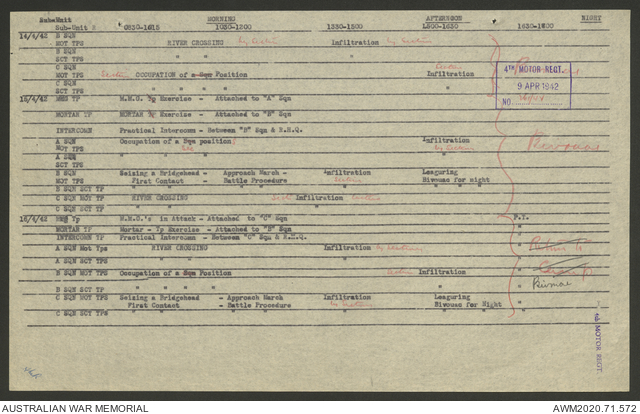 Sub-Unit MORNING AFTERNOON NIGHT
Sub-Unit S 0830-1015 1030-1200 1330-1500 1500-1630 1630-1800
14/4/42 B SQN
MOT TPS RIVER CROSSING Infiltration
B SQN " " "
SCT TPS
C SQN
MOT TPS OCCUPATION of a Sqn Position Infiltration
C SQN " " " "
SCT TPS
4TH MOTOR REGT.
9 APR 1942
NO.
15/4/42 MMG TP M.M.G. Tp Exercise - Attached to "A" Sqn
MORTAR TP MORTAR Tp Exercise - Attached to "B" Sqn
INTERCOMN Practical Intercomn - Between "B" Sqn & R.H.Q.
A SQN Occupation of a Sqn position Infiltration
MOT TPS
A SQN " " " "
SCT TPS
Bivouac
B SQN Seizing a Bridgehead - Approach March - Infiltration Leaguring
MOT TPS First Contact - Battle Procedure Bivouac for Night
B SQN SCT TP " " " " "
C SQN MOT TP RIVER CROSSING Infiltration
C SQN SCT TP " " "
16/4/42 MMG Tp M.M.G.'s in Attack - Attached to "C" Sqn P.T.
MORTAR TP Mortar - Tp Exercise - Attached to "B" Sqn "
INTERCOMN TP Practical Intercomn - Between "C" Sqn & R.H.Q. "
A SQN Mot Tps RIVER CROSSING Infiltration "
A SQN SCT TPS " " " "
B SQN MOT TPS Occupation of a Sqn Position Infiltration "
B SQN SCT TP " " " " "
Bivouac
C SQN MOT TPS Seizing a Bridgehead - Approach March Infiltration Leaguring
First Contact - Battle Procedure Bivouac for Night
C SQN SCT TPS " " " " "
4th MOTOR REGT.
AUSTRALIAN WAR MEMORIAL AWM2020.71.572